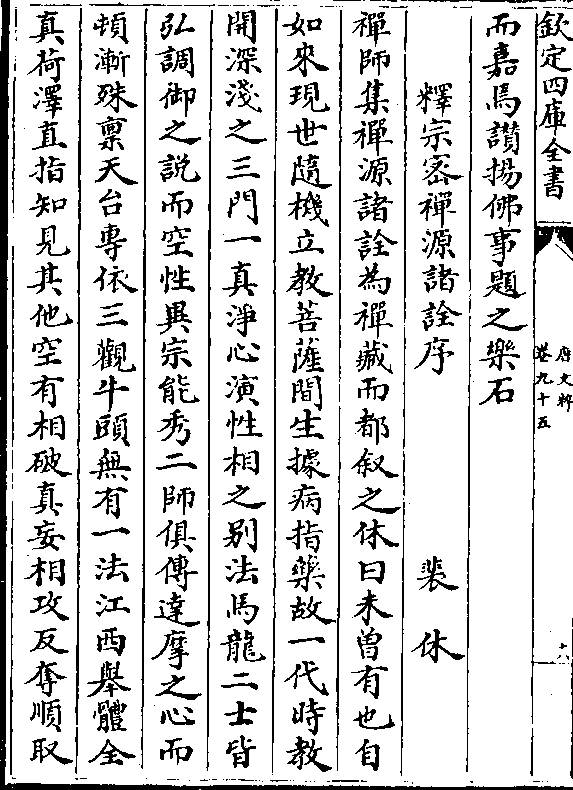 欽定四庫全書
唐文粹
卷九十五
十八
而嘉焉讃揚佛事題之樂石
釋宗宻禪源諸詮序
裴休
禪師集禪源諸詮為禪藏而都叙之休曰未曽有也自
如來現世隨機立教菩薩間生據病指藥故一代時教
開深淺之三門一真淨心演性相之别法馬龍二士皆
弘調御之説而空性異宗能秀二師俱傳達摩之心而
頓漸殊禀天台專依三觀牛頭無有一法江西舉體全
真荷澤直指知見其他空有相破真妄相攻反奪順取